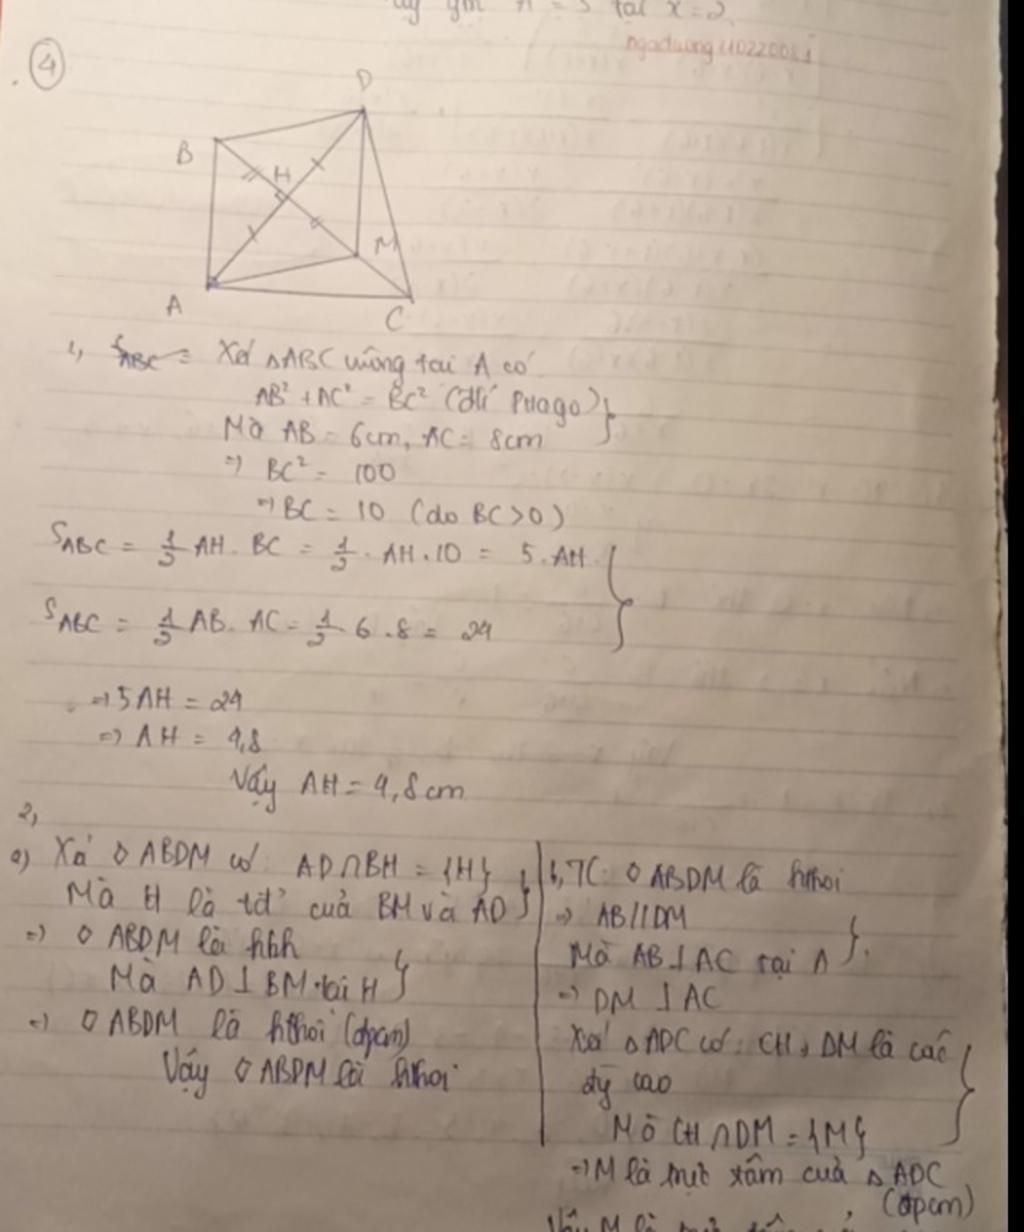 tại x=2
ngaduong11022008
4
D
B
H
M
A
C
1, S ABC = Xét △ABC vuông tại A có
AB² + AC² = BC² (đlí Pitago)
Mà AB = 6cm, AC = 8cm
⇒ BC² = 100
⇒ BC = 10 (do BC>0)
S ABC = 1/2 AH. BC = 1/2 . AH.10 = 5.AH
S ABC = 1/2 AB. AC = 1/2 6.8 = 24
⇒ 5AH = 24
⇒ AH = 4,8
Vậy AH = 4,8cm
2,
a) Xét ◊ ABDM có: AD∩BH = {H}
Mà H là tđ' của BM và AD
⇒ ◊ ABDM là hbh
Mà AD⊥BM tại H
⇒ ◊ ABDM là hthoi (đpcm)
Vậy ◊ ABDM là hthoi
b, TC: ◊ ABDM là hthoi
⇒ AB//DM
Mà AB⊥AC tại A
⇒ DM ⊥ AC
Xét △ADC có: CH, DM là các
đg cao
Mà CH∩DM = {M}
⇒ M là trực tâm của △ADC
(đpcm)
Vậy M là trực tâm